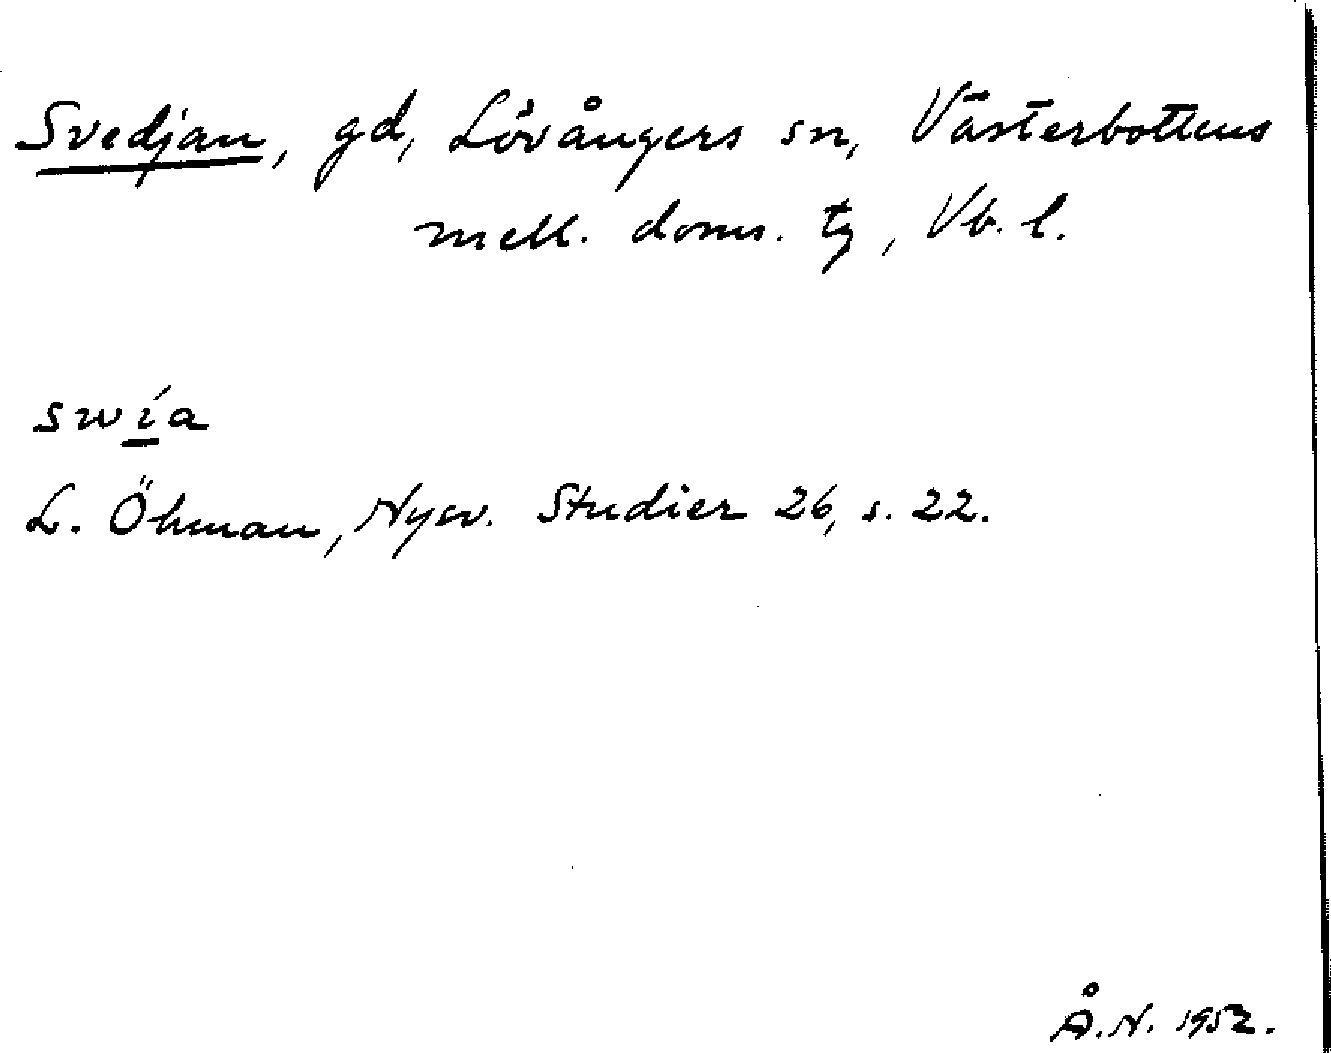 Svedjan, gd, Lövångers sn, Västerbottens
mell. doms. tg, Vb. l.
swía
L. Öhman, Nysv. Studier 26, s. 22.
Å.N. 1952.